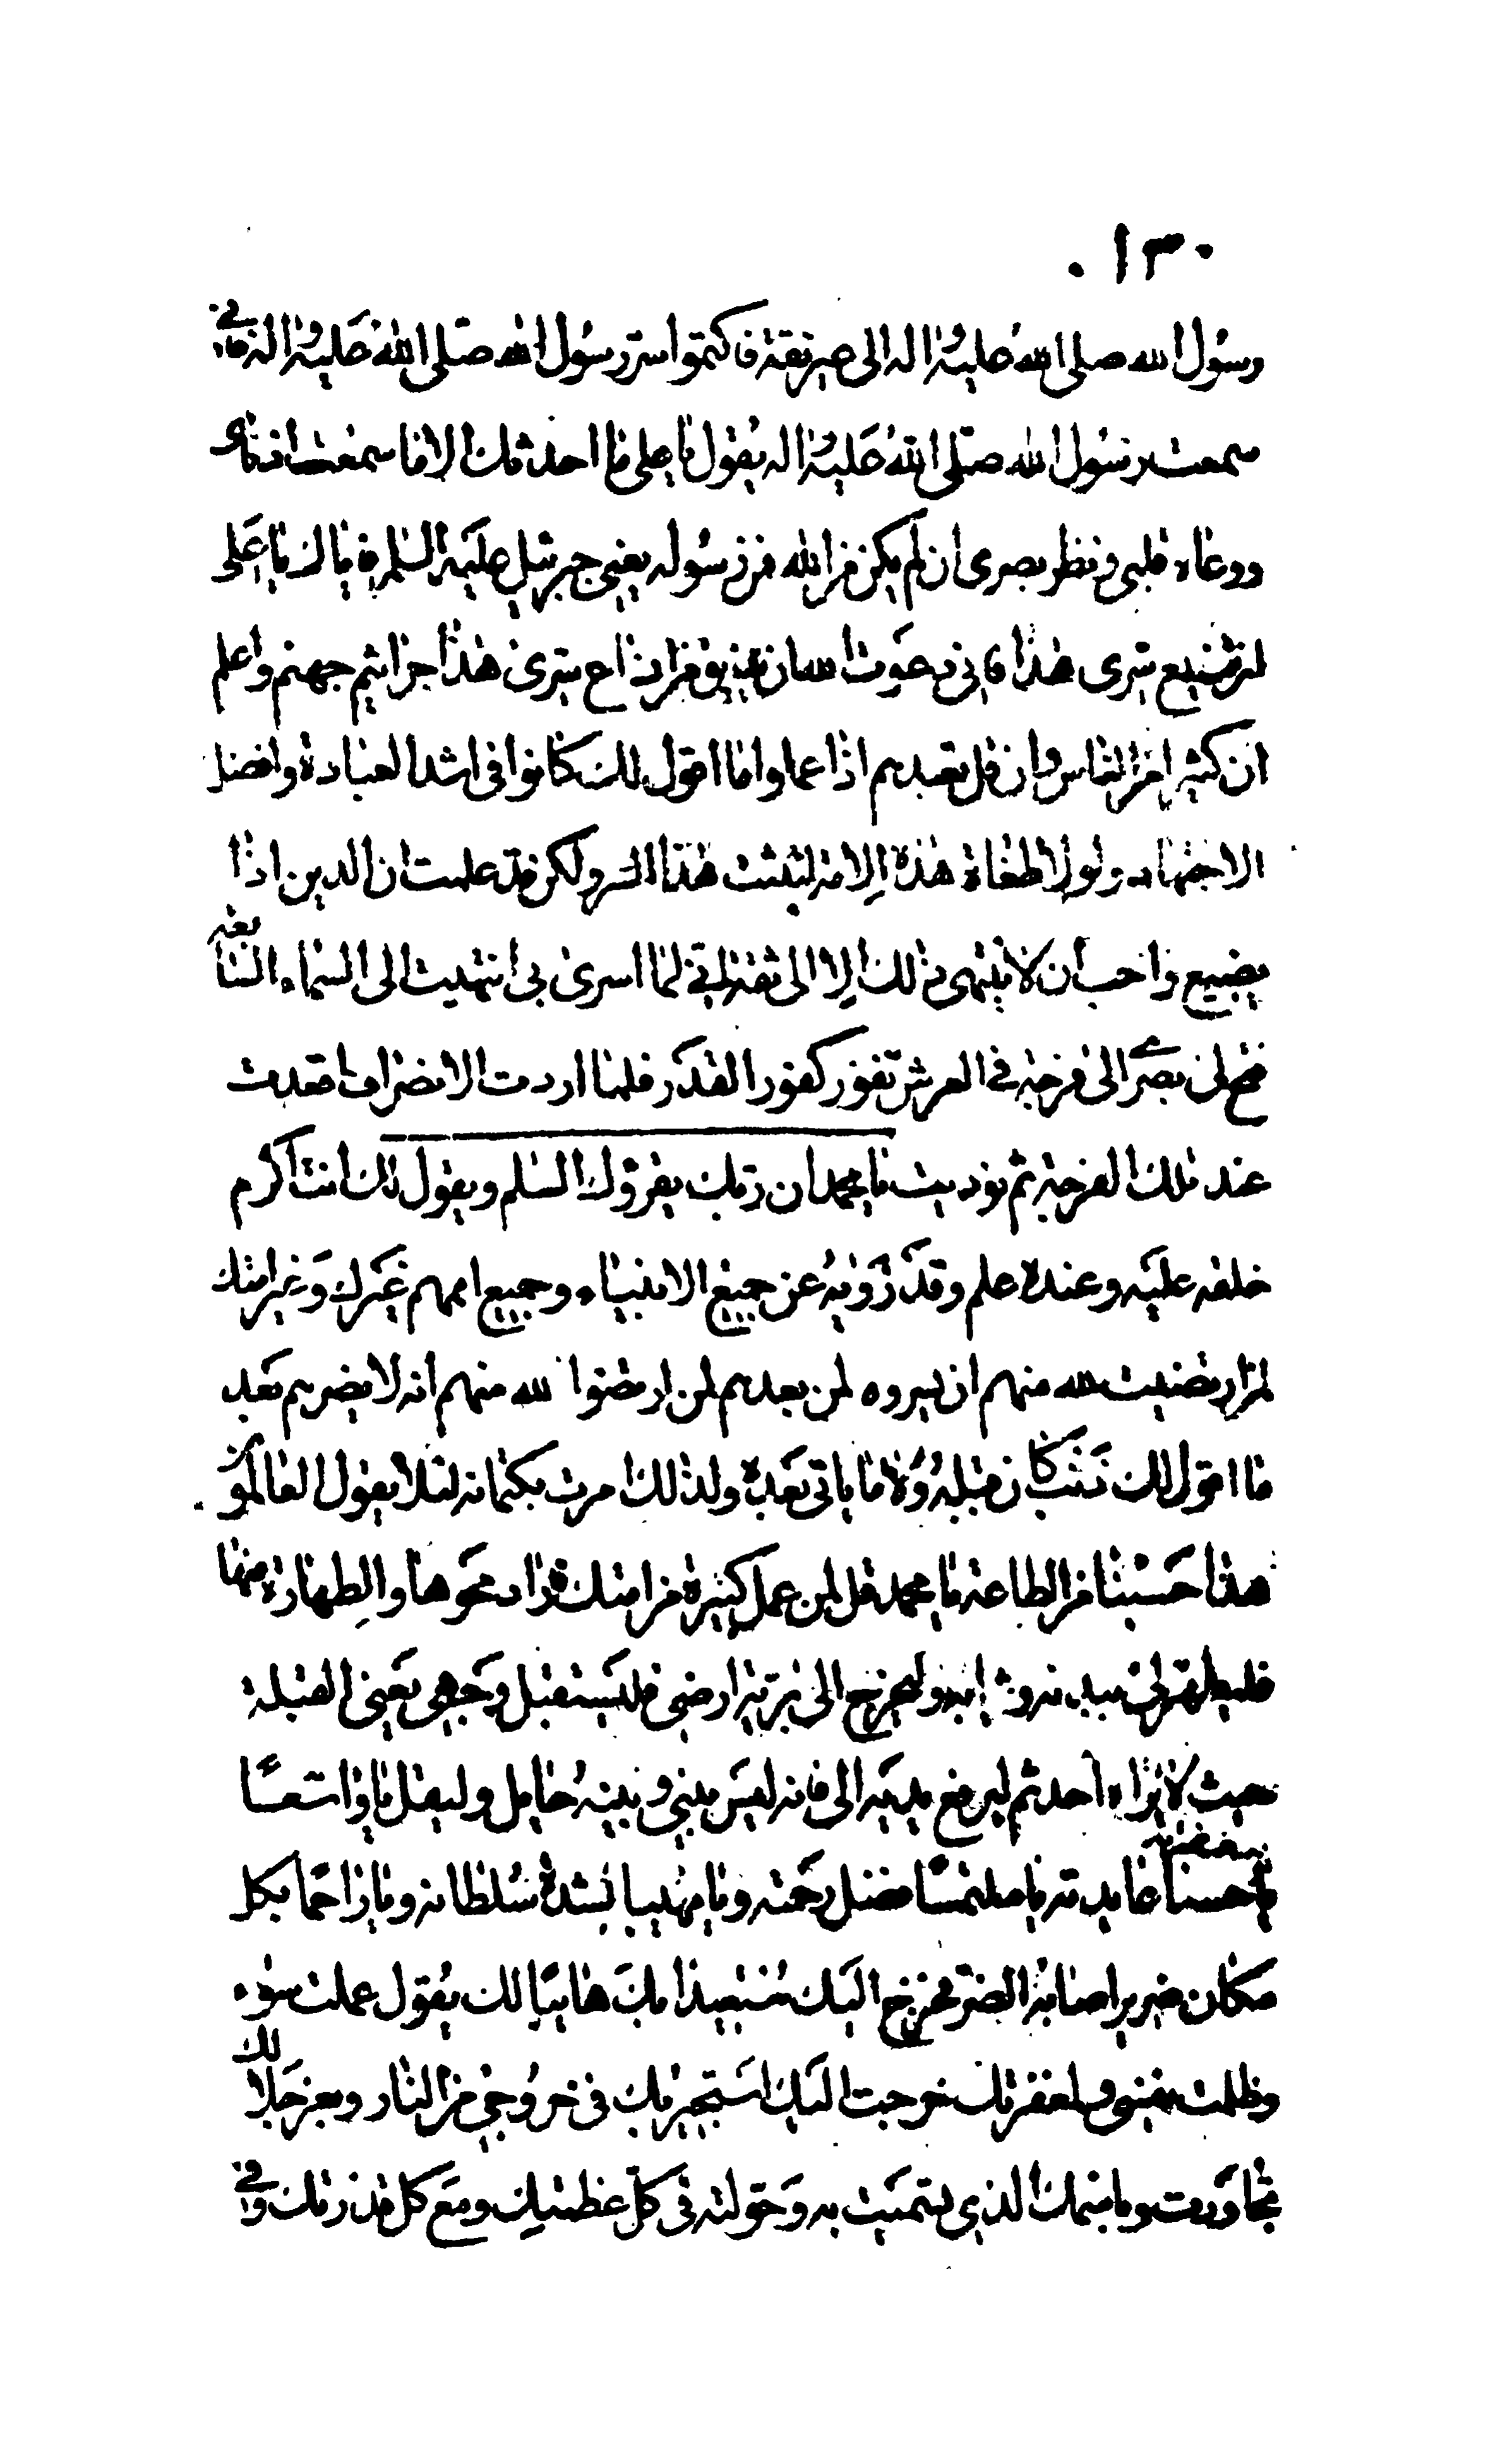 ١٣٠
رسول الله صلى الله عليه واله الى غير ثقة فاكتموا سر رسول الله صلى الله عليه واله فانى
سمعت رسول الله صلى الله عليه واله يقول يا على ما احدثك الا ما سمعت اذناى
ووعاه قلبى ونظر بصرى ان لم يكن من الله فمن رسوله يعنى جبرئيل عليه السلم فاياك يا على
ان تضيع سرى هذا فانى دعوت الله ان يذيق من اضاع سرى هذا جراثيم جهنم واعلم
ان كثيرا من الناس وان قل تعبدهم اذا علموا ما اقول لك كانوا فى اشد العبادة وافضل
الاجتهاد ولولا طغاة هذه الامة لبثثت هذا السر ولكن قد علمت ان الدين اذا
يضيع واحب ان لا ينتهى ذلك الا الى ثقة انى لما اسرى بى انتهيت الى السماء السابعة
فتح لى بصرى الى فرجة فى العرش تفور كفور القدر فلما اردت الانصراف اقعدت
عند تلك الفرجة ثم نوديت يا محمد ان ربك يقرؤك السلم ويقول لك انت اكرم
خلقه عليه وعنده علم وقد زويه عن جميع الانبياء وجميع اممهم غيرك وغير امتك
لمن ارتضيت لله منهم ان يسروه لمن بعدهم لمن ارتضوا لله منهم انه لا يضرهم بعد
ما اقول لك ذنب كان قبله ولا ما ياتى بعده ولذلك امرت بكتمانه لئلا يقول العالمون
حسبنا هذا من الطاعة يا محمد قل لمن عمل كبيرة من امتك فاراد محوها والطهارة منها
فليطهر لى بدنه وثيابه وليخرج الى برية ارضى فليستقبل وجهى يعنى القبلة
حيث لا يراه احد ثم ليرفع يديه الى فانه ليس بينى وبينه حايل وليقل يا واسعا
بحسن عايدته يا ملبسا فضل رحمته ويا مهيبا لشدة سلطانه ويا راحما بكل
مكان ضرير اصابه الضر فخرج اليك مستغيثا بك هائبا لك يقول عملت سوء
وظلمت نفسى ولمغفرتك خرجت اليك استجير بك فى خروجى من النار وبعز جلالك
تجاوزت وباسمك الذى تسميت به وجعلته فى كل عظمتك ومع كل قدرتك وفى